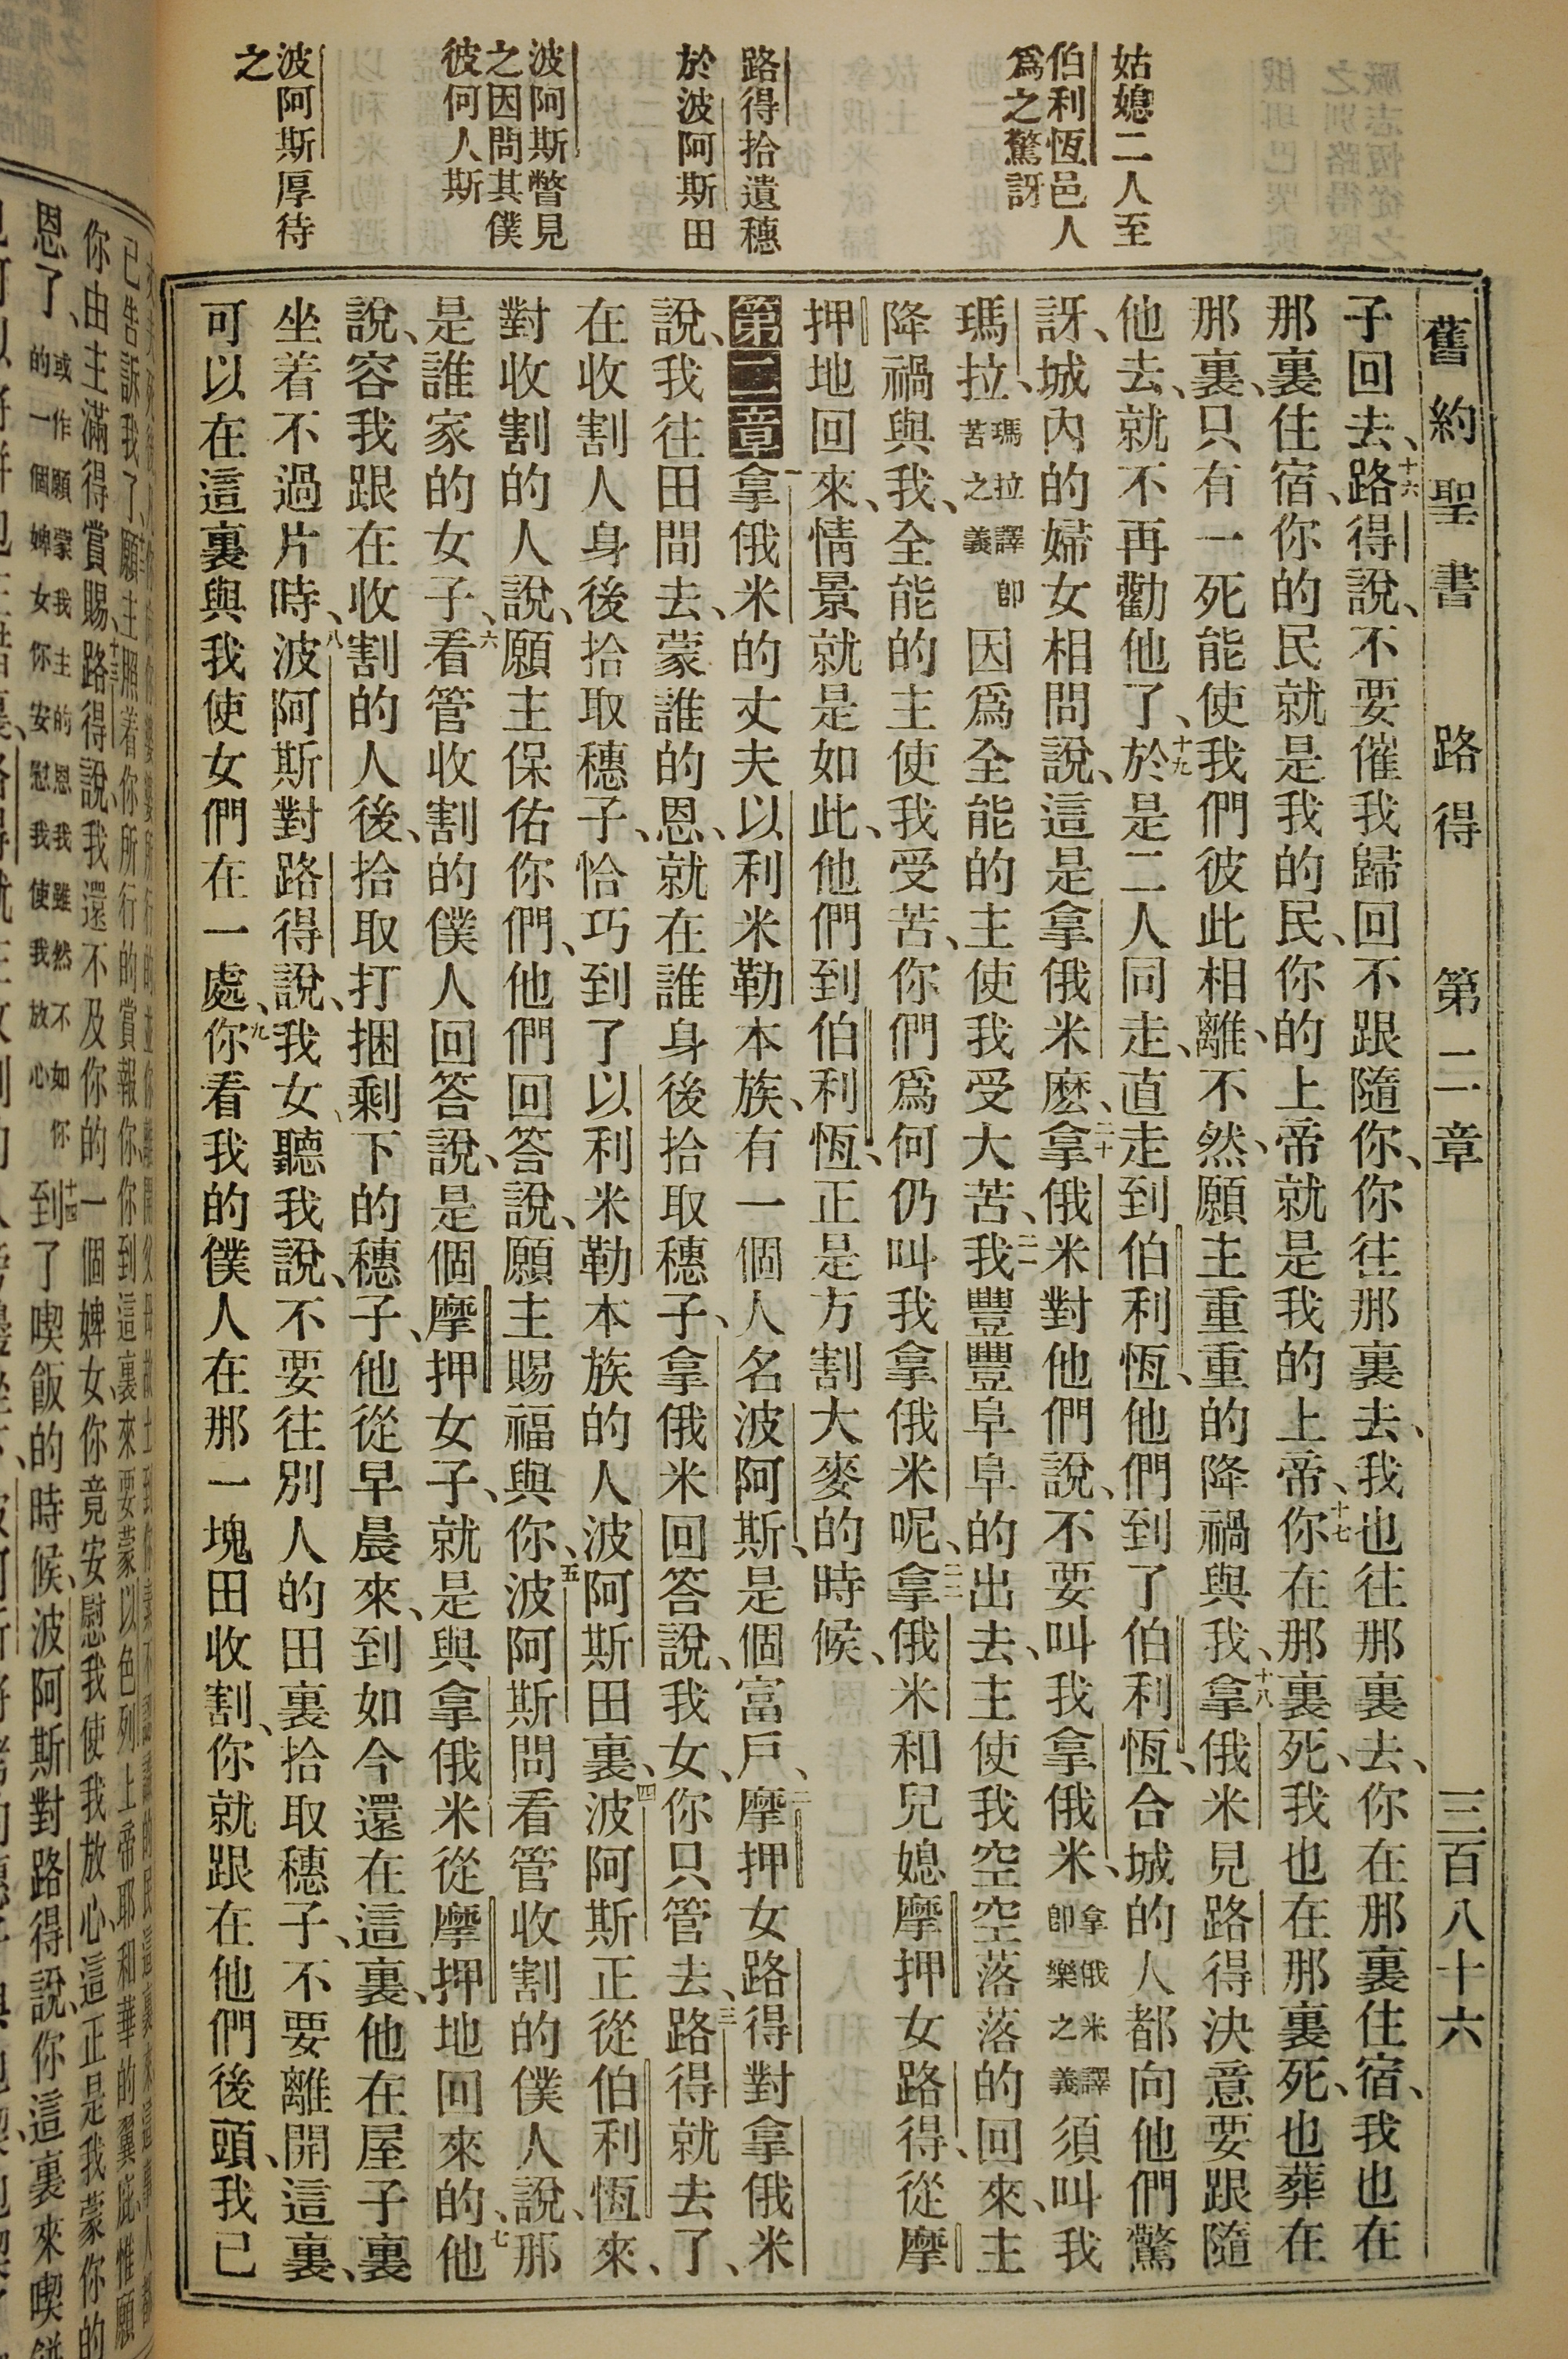 舊約聖書 路得 第二章 三百八十六
姑媳二人至
伯利恆邑人
爲之驚訝
路得拾遺穗
於波阿斯田
波阿斯瞥見
之因問其僕
彼何人斯
波阿斯厚待
之
子回去、十六路得說、不要催我歸回不跟隨你、你往那裏去、我也往那裏去、你在那裏住宿、我也在
那裏住宿、你的民就是我的民、你的上帝就是我的上帝、十七你在那裏死、我也在那裏死、也葬在
那裏、只有一死能使我們彼此相離、不然、願主重重的降禍與我、十八拿俄米見路得決意要跟隨
他去、就不再勸他了、十九於是二人同走、直走到伯利恆、他們到了伯利恆、合城的人都向他們驚
訝、城內的婦女相問說、這是拿俄米麽、二十拿俄米對他們說、不要叫我拿俄米、拿俄米譯卽樂之義須叫我
瑪拉、瑪拉譯卽苦之義因爲全能的主使我受大苦、二一我豐豐阜阜的出去、主使我空空落落的回來、主
降禍與我、全能的主使我受苦、你們爲何仍叫我拿俄米呢、二二拿俄米和兒媳摩押女路得、從摩
押地回來、情景就是如此、他們到伯利恆、正是方割大麥的時候、
第二章一拿俄米的丈夫以利米勒本族、有一個人名波阿斯、是個富戶、二摩押女路得對拿俄米
說、我往田間去、蒙誰的恩、就在誰身後拾取穗子、拿俄米回答說、我女、你只管去、三路得就去了、
在收割人身後拾取穗子、恰巧到了以利米勒本族的人波阿斯田裏、四波阿斯正從伯利恆來、
對收割的人說、願主保佑你們、他們回答說、願主賜福與你、五波阿斯問看管收割的僕人說、那
是誰家的女子、六看管收割的僕人回答說、是個摩押女子、就是與拿俄米從摩押地回來的、七他
說、容我跟在收割的人後、拾取打捆剩下的穗子、他從早晨來、到如今還在這裏、他在屋子裏
坐着不過片時、八波阿斯對路得說、我女、聽我說、不要往別人的田裏拾取穗子、不要離開這裏、
可以在這裏與我使女們在一處、九你看我的僕人在那一塊田收割、你就跟在他們後頭、我已
已告訴我了、願主照着你所行的賞報你、你到這裏來要蒙以色列上帝耶和華的翼庇、惟願
你由主滿得賞賜、十三路得說、我還不及你的一個婢女、你竟安慰我使我放心、這正是我蒙你的
恩了、或作願蒙我主的恩我雖然不如你的一個婢女你安慰我使我放心十四到了喫飯的時候、波阿斯對路得說、你這裏來喫餅